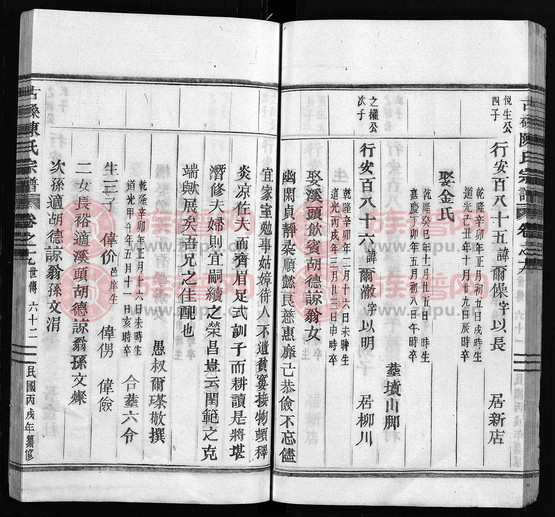 古磉陳氏宗譜 卷之九
悅生公
四子
行安百八十五 諱爾傑 字以長 居新店
乾隆辛卯年三月初九日戌時生
道光己丑年十月十九日辰時卒
娶金氏
乾隆癸巳年十月廿五
嘉慶 年 月 時卒
葬墳山脚
之權公
次子
行安百八十六 諱爾澈 字以明 居柳川
乾隆辛卯年二月二十六日未時生
道光丙戌年三月廿三日申時卒
娶溪頭飲賓胡德諒翁女
幽閑貞靜柔順懿民慈惠廉己恭儉不忘儘
宜家室勉事姑嫜待人不遺貧寠接物頗釋
炎涼佐夫而齊眉足式訓子而耕讀是將堪
潛修夫婦則宜嗣續之榮昌豈云閨範之克
端歟展矣吾兄之佳配也
愚叔爾璂敬撰
乾隆辛卯年正月十六日未時生
道光甲午年五月十一日亥時卒
合葬六令
生三子 偉价 邑庠生 偉僗 偉儉
二女長裕適溪頭胡德諒翁孫文燦
次孫適胡德諒翁孫文渭
古磉陳氏宗譜 卷之九 世傳 六十二 民國丙戌年纂修